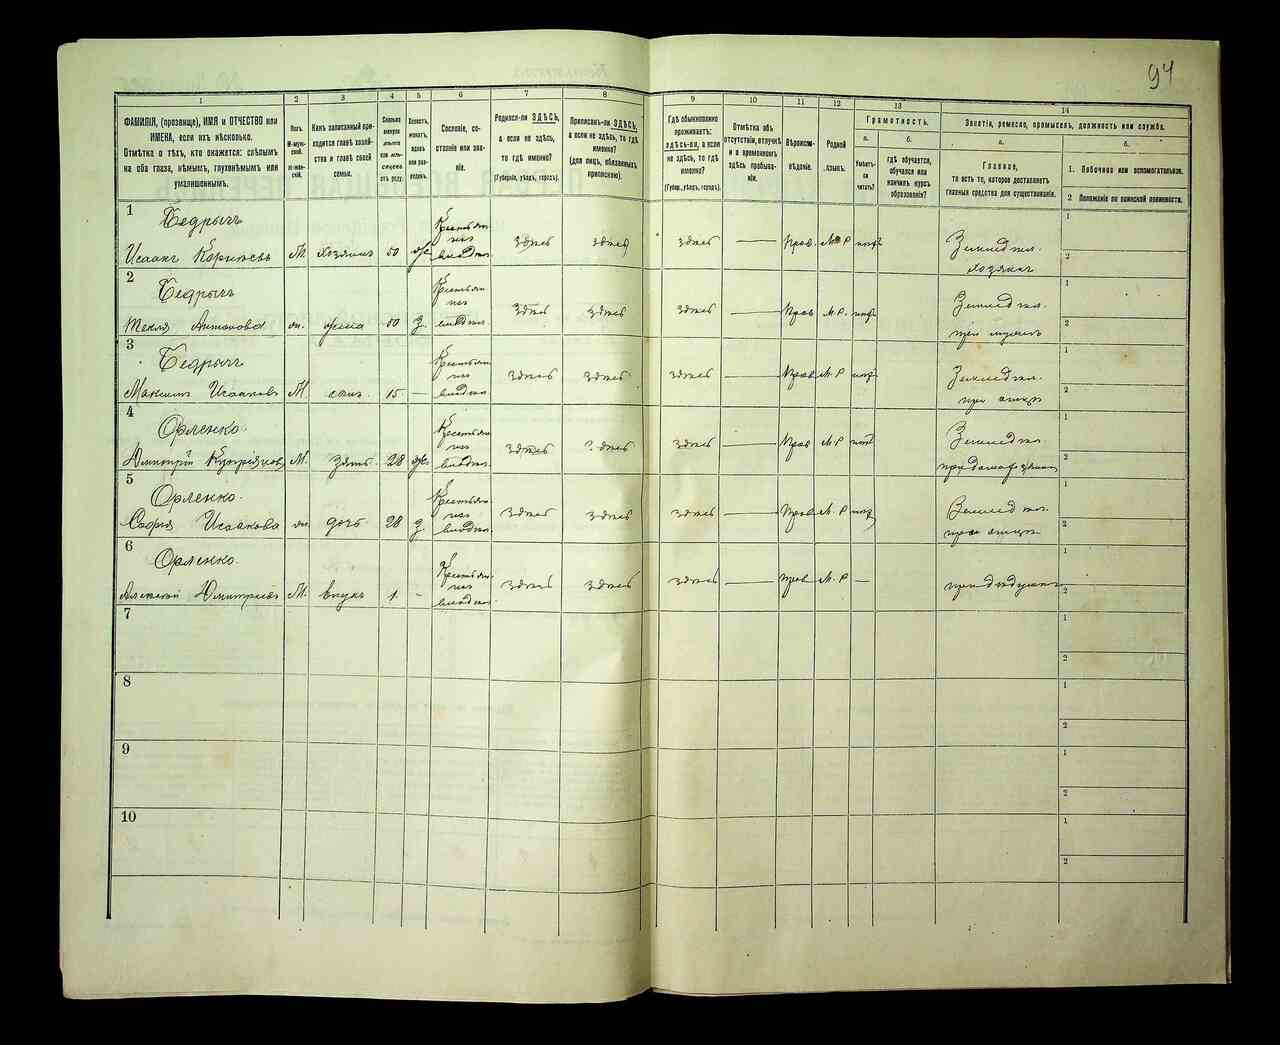 94
1
2
3
4
5
6
7
8
9
10
11
12
13
14
ФАМИЛІЯ, (прозвище), ИМЯ и ОТЧЕСТВО или
ИМЕНА, если ихъ нѣсколько.
Отмѣтка о тѣхъ, кто окажется: слѣпымъ
на оба глаза, нѣмымъ, глухонѣмымъ или
умалишеннымъ.
Полъ.
М-муж-
ской.
Ж-жен-
скій.
Какъ записанный при-
ходится главѣ хозяй-
ства и главѣ своей
семьи.
Сколько
минуло
лѣтъ
или мѣ-
сяцевъ
отъ роду.
Холостъ,
женатъ,
вдовъ
или раз-
веденъ.
Сословіе, со-
стояніе или зва-
ніе.
Родился-ли ЗДѢСЬ,
а если не здѣсь,
то гдѣ именно?
(Губернія, уѣздъ, городъ).
Приписанъ-ли ЗДѢСЬ,
а если не здѣсь, то гдѣ
именно?
(для лицъ, обязанныхъ
припискою).
Гдѣ обыкновенно
проживаетъ:
здѣсь-ли, а если
не здѣсь, то гдѣ
именно?
(Губер., уѣздъ, городъ).
Отмѣтка объ
отсутствіи, отлучкѣ
и о временномъ
здѣсь пребыва-
ніи.
Вѣроиспо-
вѣданіе.
Родной
языкъ.
Грамотность.
а.
Умѣетъ-
ли
читать?
б.
гдѣ обучается,
обучался или
кончилъ курсъ
образованія?
Занятіе, ремесло, промыселъ, должность или служба.
а.
Главное,
то есть то, которое доставляетъ
главныя средства для существованія.
б.
1. Побочное или вспомогательное.
2 Положеніе по воинской повинности.
1
Бедрычъ
Исаакъ Корнѣевъ М. хозяинъ 50 ж. Крестьян
изъ
владѣл.
здѣсь здѣсь здѣсь — Прав. М.Р нѣтъ Земледѣл.
хозяинъ
1
2
2
Бедрычъ
Текля Антонова ж. жена 50 З. Крестьян
изъ
владѣл.
здѣсь здѣсь здѣсь — Прав М.Р нѣтъ Земледѣл.
при мужѣ
1
2
3
Бедрычъ
Максимъ Исааковъ М. сынъ 15 — Крестьян
изъ
владѣл.
здѣсь здѣсь здѣсь — Прав М.Р нѣтъ Земледѣл.
при отцѣ
1
2
4
Орленко.
Дмитрій М. Зять 28 ж. Крестьян
изъ
владѣл.
здѣсь здѣсь здѣсь — Прав М.Р нѣтъ Земледѣл.
1
2
5
Орленко.
Софія Исаакова ж. дочь 28 З. Крестьян
изъ
владѣл.
здѣсь здѣсь здѣсь — Прав М.Р нѣтъ Земледѣл.
при отцѣ
1
2
6
Орленко.
Алексѣй Дмитріевъ М. внукъ 1. - Крестьян
изъ
владѣл.
здѣсь здѣсь здѣсь — Прав М.Р — при дѣдушкѣ
1
2
7
1
2
8
1
2
9
1
2
10
1
2